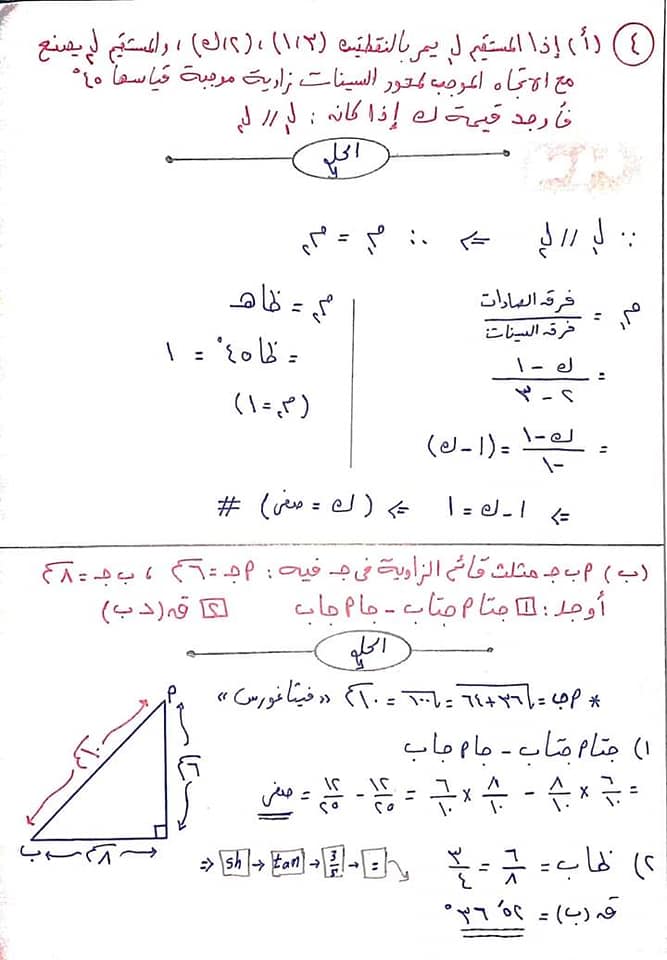 ٤ (أ) إذا المستقيم ل₁ يمر بالنقطتين (٣،١)، (٢،ك)، والمستقيم ل₂ يصنع
مع الاتجاه الموجب لمحور السينات زاوية موجبة قياسها ٤٥°
فأوجد قيمة ك إذا كان: ل₁ // ل₂
الحل
∵ ل₁ // ل₂ ⇐ ∴ م₁ = م₂
م₁ = فرق الصادات / فرق السينات
= (ك - ١) / (٢ - ٣)
= (ك - ١) / -١ = (١ - ك)
م₂ = ظا هـ
= ظا ٤٥° = ١
(م₂ = ١)
⇐ ١ - ك = ١ ⇐ (ك = صفر) #
(ب) م ب جـ مثلث قائم الزاوية فى جـ فيه: م جـ = ٦ سم، ب جـ = ٨ سم
أوجد: ١ جتا م جتا ب - جا م جا ب ٢ ق(∠ب)
الحل
* م ب = √(٣٦ + ٦٤) = √١٠٠ = ١٠ سم «فيثاغورس»
١) جتا م جتا ب - جا م جا ب
= ٦/١٠ × ٨/١٠ - ٨/١٠ × ٦/١٠ = ١٢/٢٥ - ١٢/٢٥ = صفر
٢) ظا ب = ٦/٨ = ٣/٤
⇒ sh → tan → → =
ق(ب) = ٥٢َ ٣٦°
م
١٠ سم
٦ سم
ب
٨ سم